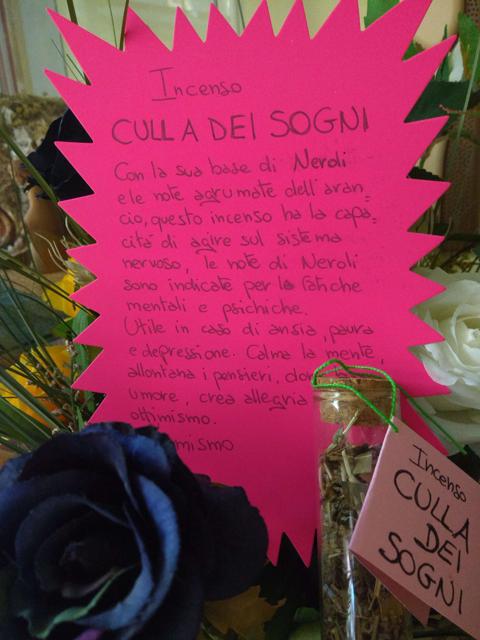 Incenso
CULLA DEI SOGNI
Con la sua base di Neroli
e le note agrumate dell'aran=
cio, questo incenso ha la capa=
cità di agire sul sistema
nervoso, le note di Neroli
sono indicate per la fatiche
mentali e psichiche.
Utile in caso di ansia, paura
e depressione. Calma la mente,
allontana i pensieri,
umore, crea allegria
ottimismo.
Incenso
CULLA
DEI
SOGNI